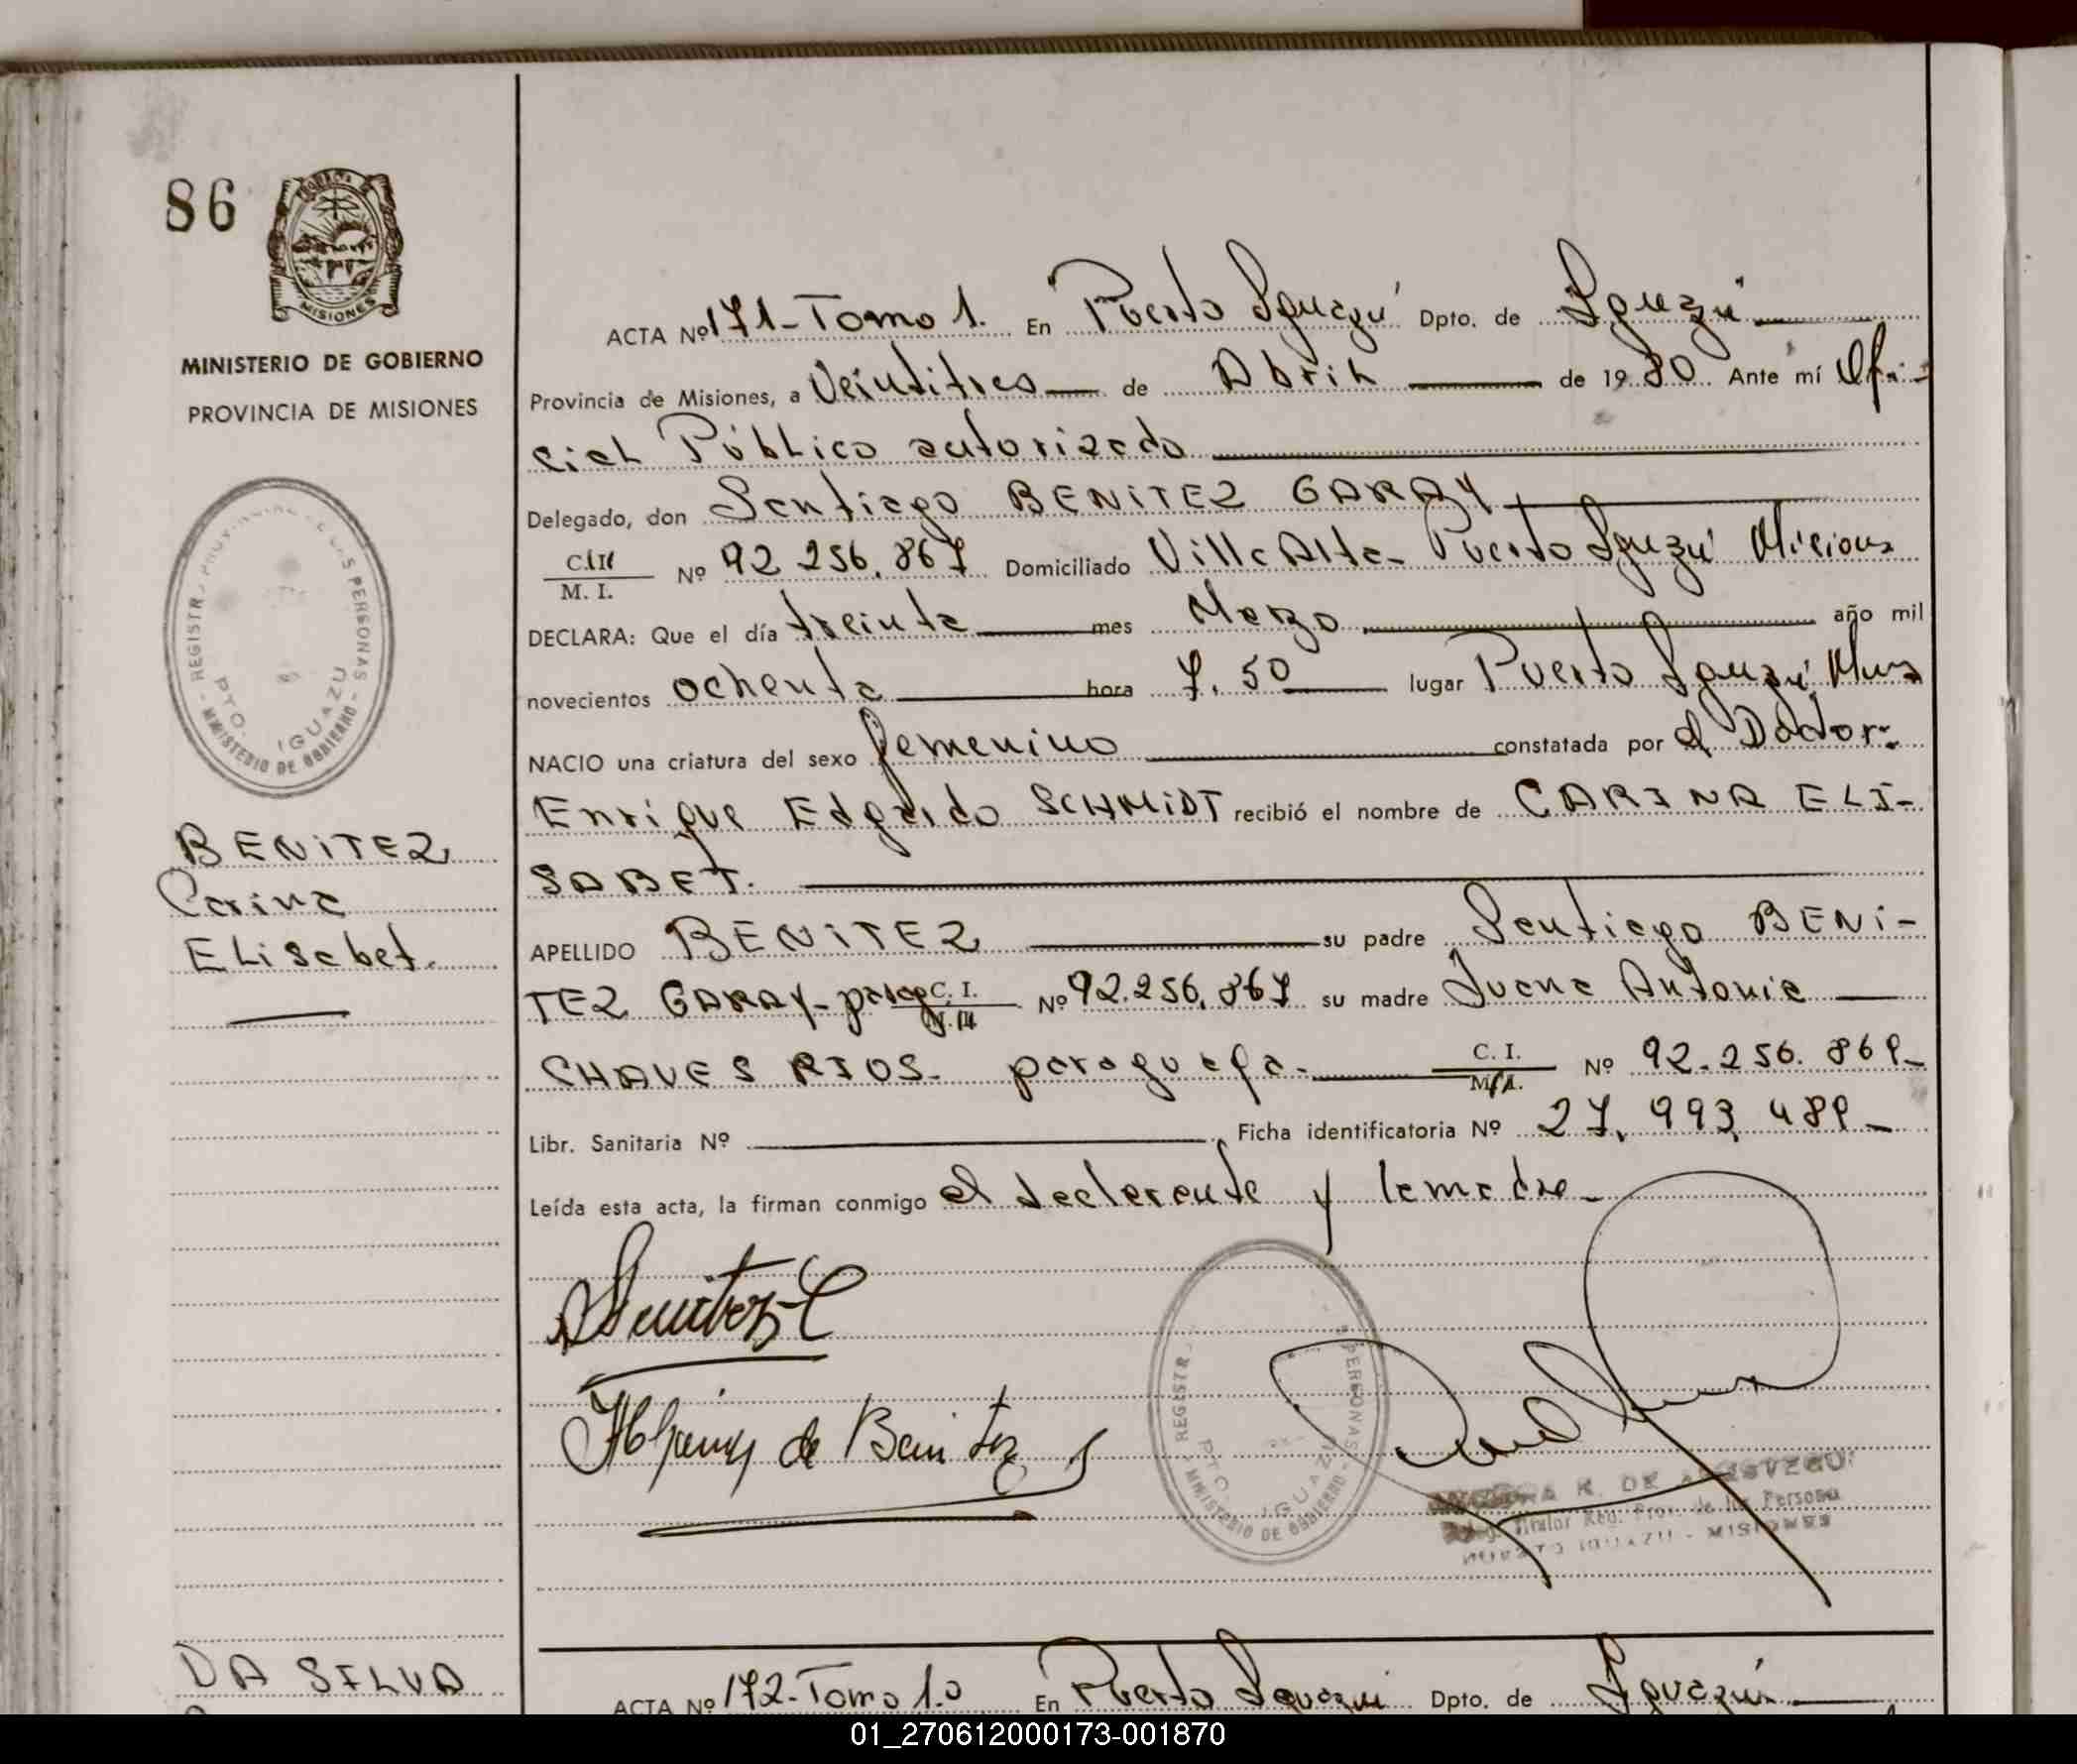 86
MISIONES
MINISTERIO DE GOBIERNO
PROVINCIA DE MISIONES
REGISTR. PERSONAS
PTO. IGUAZU
MINISTERIO DE GOBIERNO
BENiTEZ
Carina
ELisabet.
ACTA Nº 171-Tomo 1. En Puerto Iguazú Dpto. de Iguazú
Provincia de Misiones, a Veintitres de Abril de 1980. Ante mí Ofi-
cial Público autorizado
Delegado, don Santiago BENiTEZ GARAY
C.I.
M. I. Nº 92.256.867 Domiciliado Villa Alta- Puerto Iguazú Misiones
DECLARA: Que el día treinta mes Marzo año mil
novecientos ochenta hora 7.50 lugar Puerto Iguazú, Mnes
NACIO una criatura del sexo femenino constatada por el Doctor:
Enrique Edgardo SCHMiDT recibió el nombre de CARINA ELI-
SABET.
APELLIDO BENiTEZ su padre Santiago BENi-
TEZ GARAY- parag C. I. Nº 92.256.867 su madre Juana Antonia
CHAVES RIOS. paraguaya. C. I.
M. I. Nº 92.256.869-
Libr. Sanitaria Nº Ficha identificatoria Nº 27.993.489-
Leída esta acta, la firman conmigo el declarante y la madre-
de Benitez
REGISTR. PERSONAS
PTO. IGUAZU
MINISTERIO DE GOBIERNO
K. DE
Titular Reg. Prov. de las Personas
PUERTO IGUAZU - MISIONES
DA SILVA
ACTA Nº 172-Tomo 1.º En Puerto Iguazú Dpto. de Iguazú
01_270612000173-001870